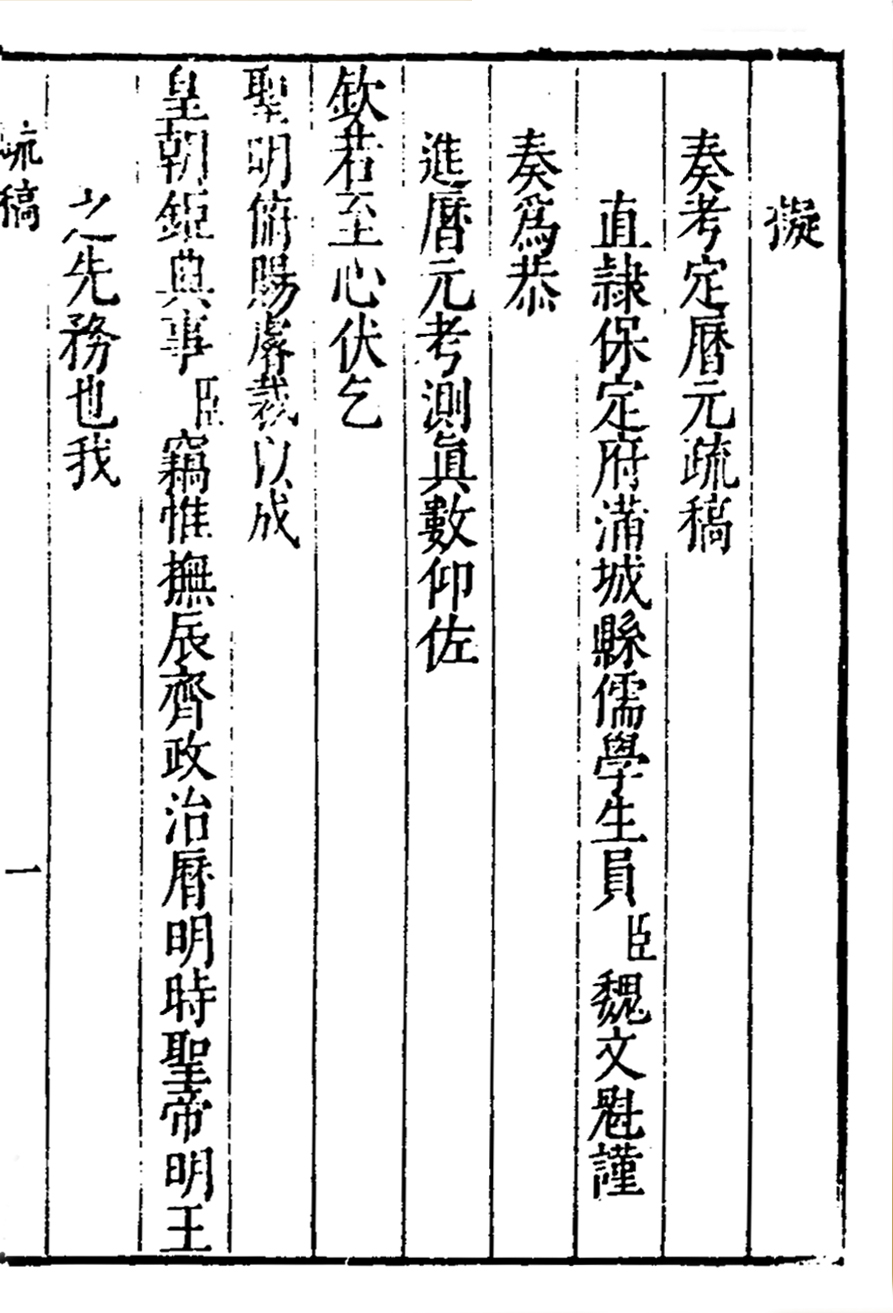 擬
奏考定曆元疏稿
直隷保定府滿城縣儒學生員臣魏文魁謹
奏爲恭
進曆元考測眞數仰佐
欽若至心伏乞
聖明俯賜睿裁以成
皇朝鉅典事臣竊惟撫辰齊政治曆明時聖帝明王
之先務也我
疏稿
一